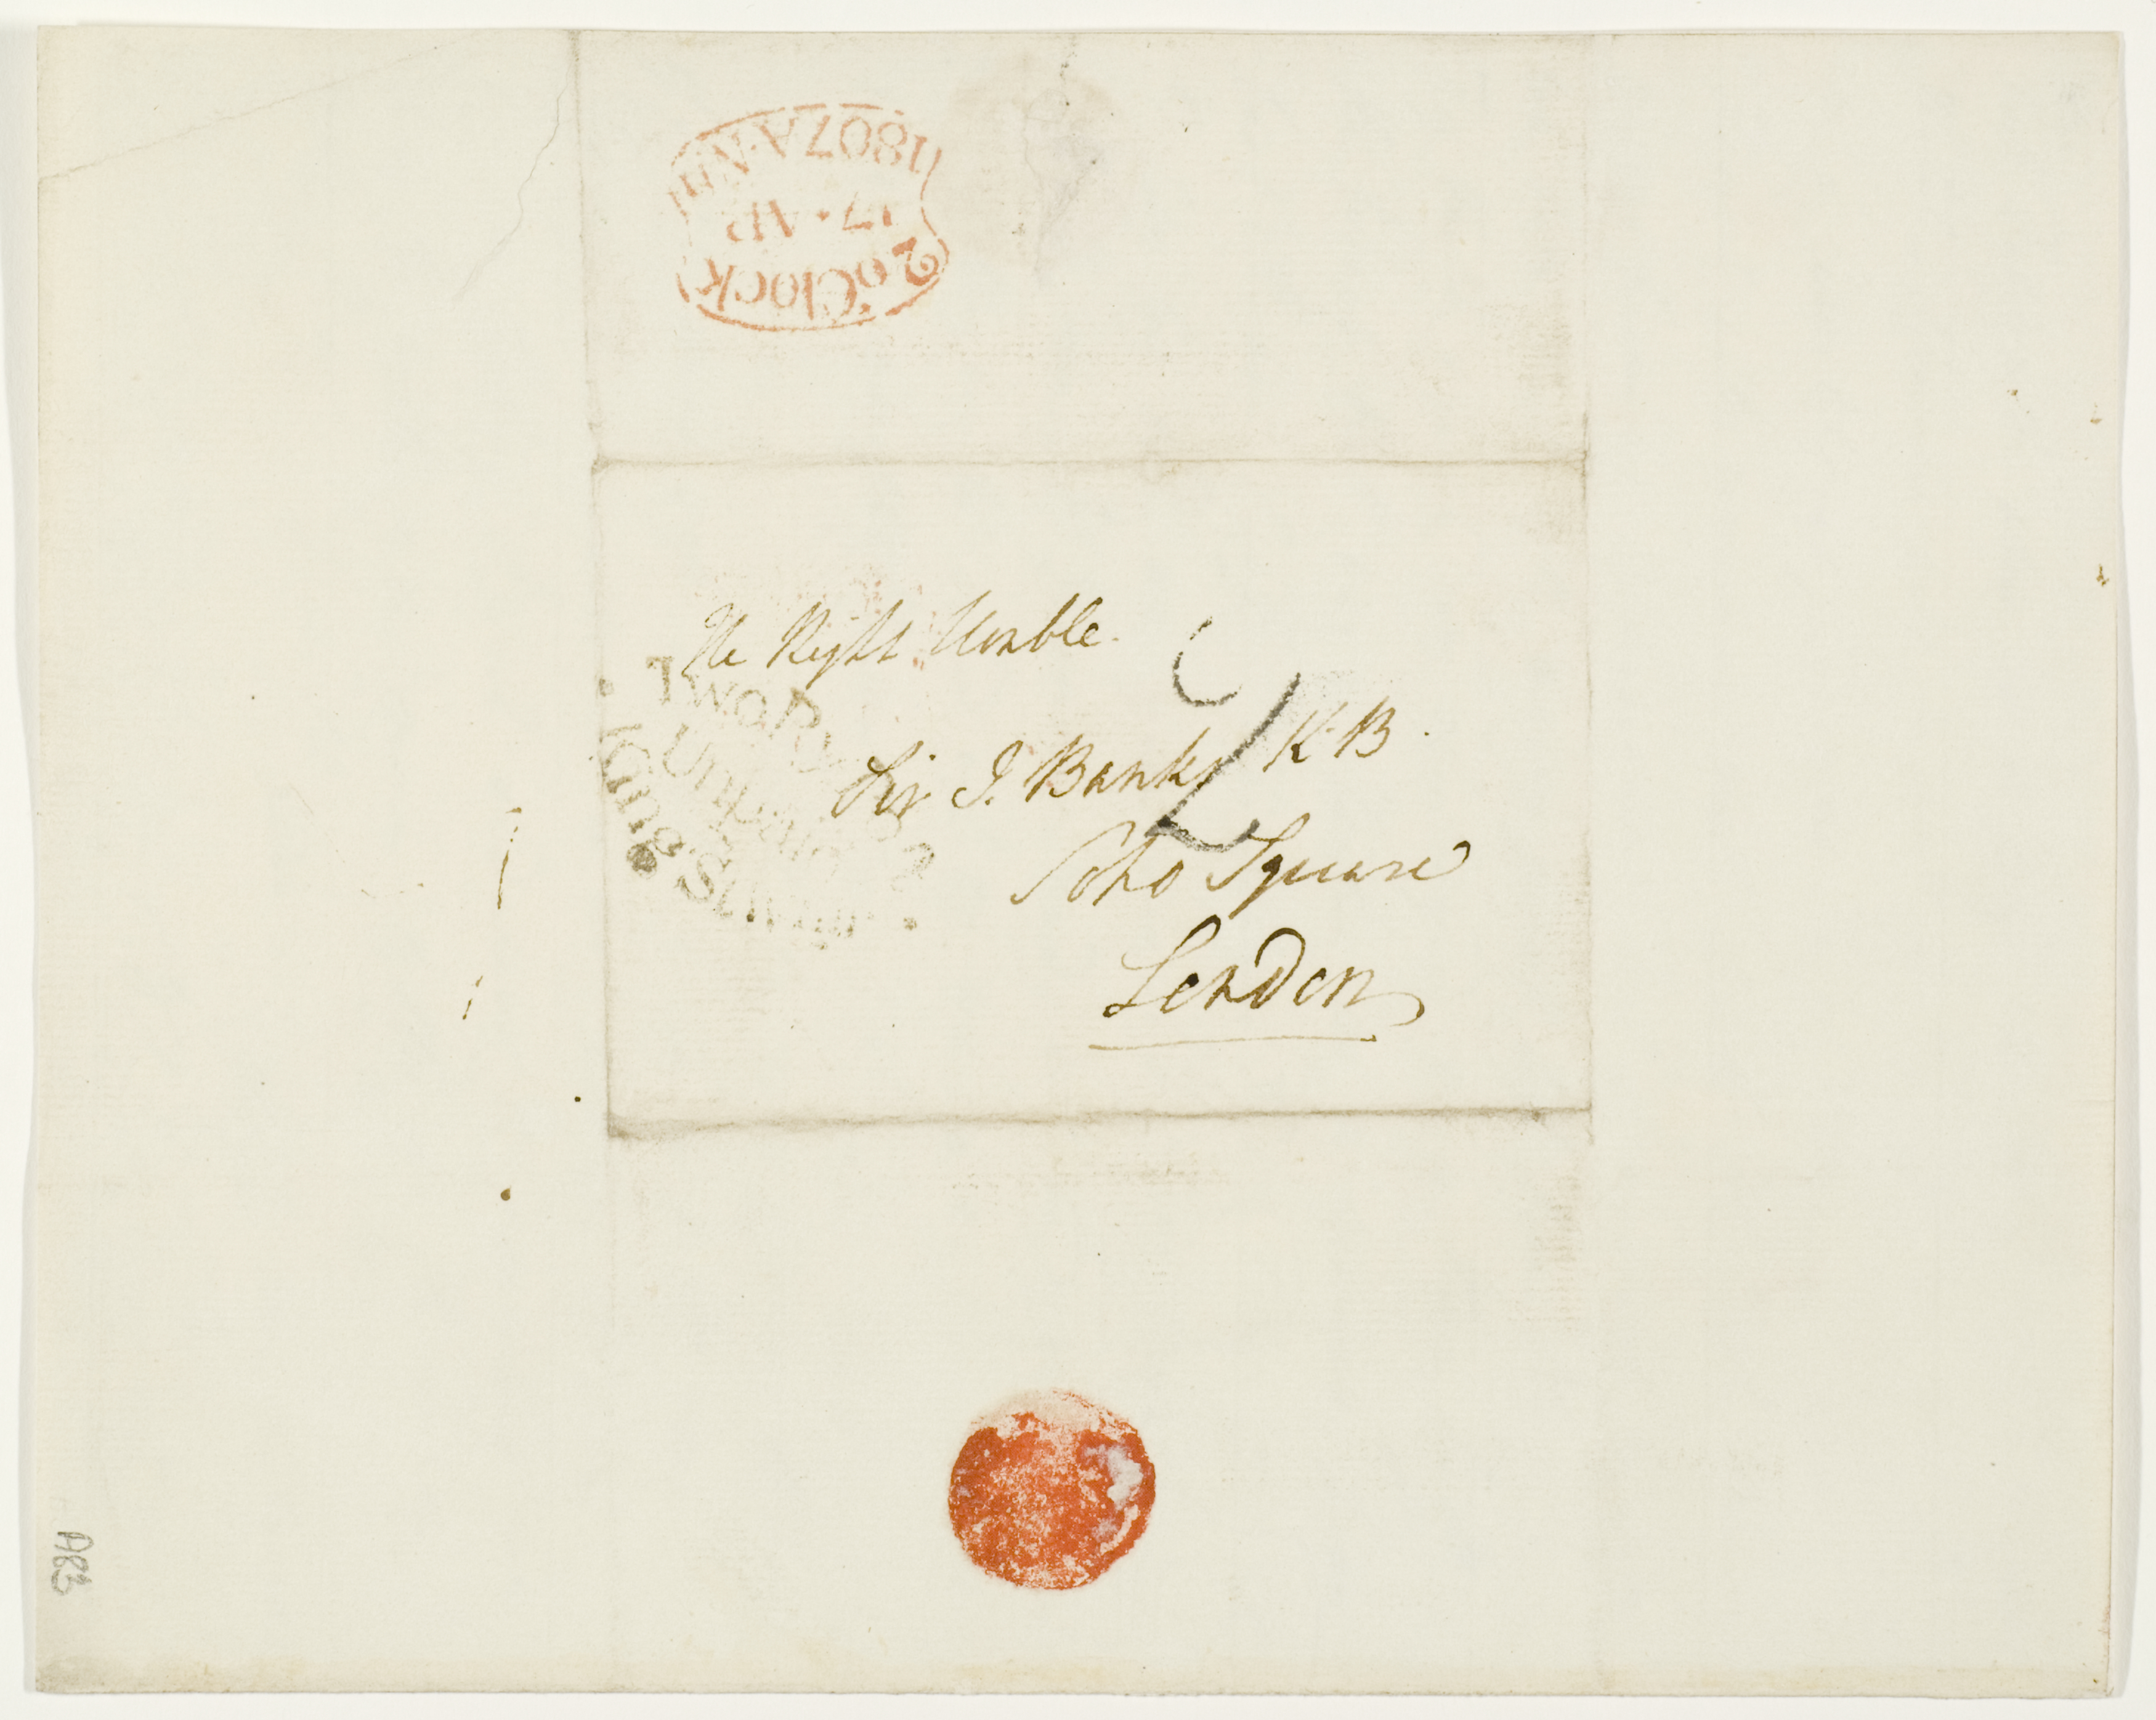 2 o'Clock
17 · AP
1807 A.N
The Right Honble.
Sir J. Banks K.B.
Soho Square
London
2
Two Py Post
Unpaid
King St
A83